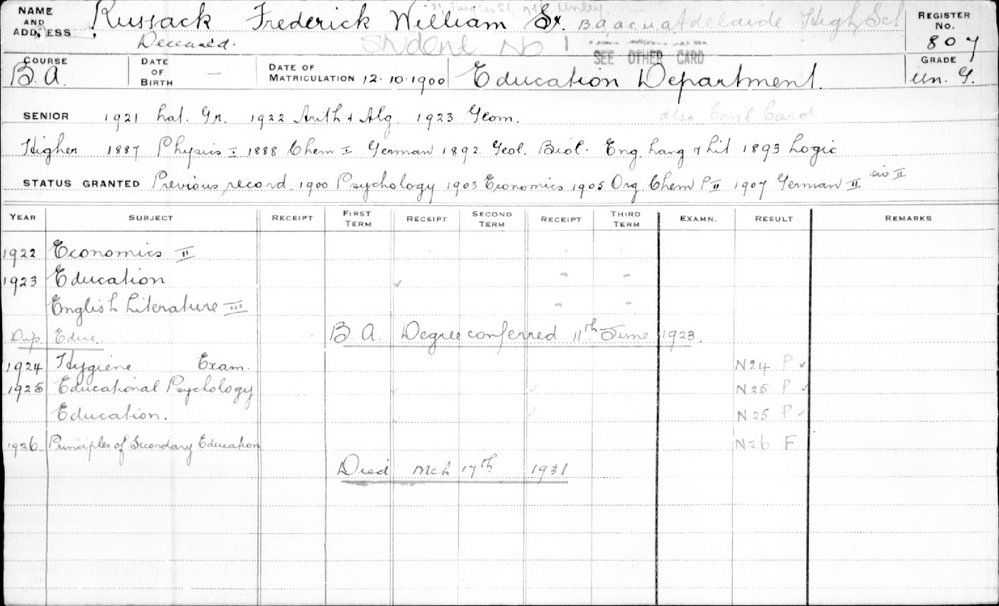 NAME AND ADDRESS Russack Frederick William Sr. B.A. Adelaide High Scl REGISTER No. 807
Deceased. Student No 1 SEE OTHER CARD
COURSE B.A. DATE OF BIRTH — DATE OF MATRICULATION 12.10.1900 Education Department. GRADE Un. G.
SENIOR 1921 Lat. Gr. 1922 Arith & Alg. 1923 Geom. also Coml Card
Higher 1887 Physics I 1888 Chem I German 1892 Geol. Biol. Eng. Lang & Lit 1893 Logic
STATUS GRANTED Previous record. 1900 Psychology 1903 Economics 1905 Org. Chem P II 1907 German II
YEAR SUBJECT RECEIPT FIRST TERM RECEIPT SECOND TERM RECEIPT THIRD TERM EXAMN. RESULT REMARKS
1922 Economics II
1923 Education
English Literature III
Dip. Educ. B A. Degree conferred 11th June 1923.
1924 Hygiene Exam. N24 P ✓
1925 Educational Psychology N25 P ✓
Education. N25 P ✓
1926 Principles of Secondary Education N26 F
Died Mch 17th 1931